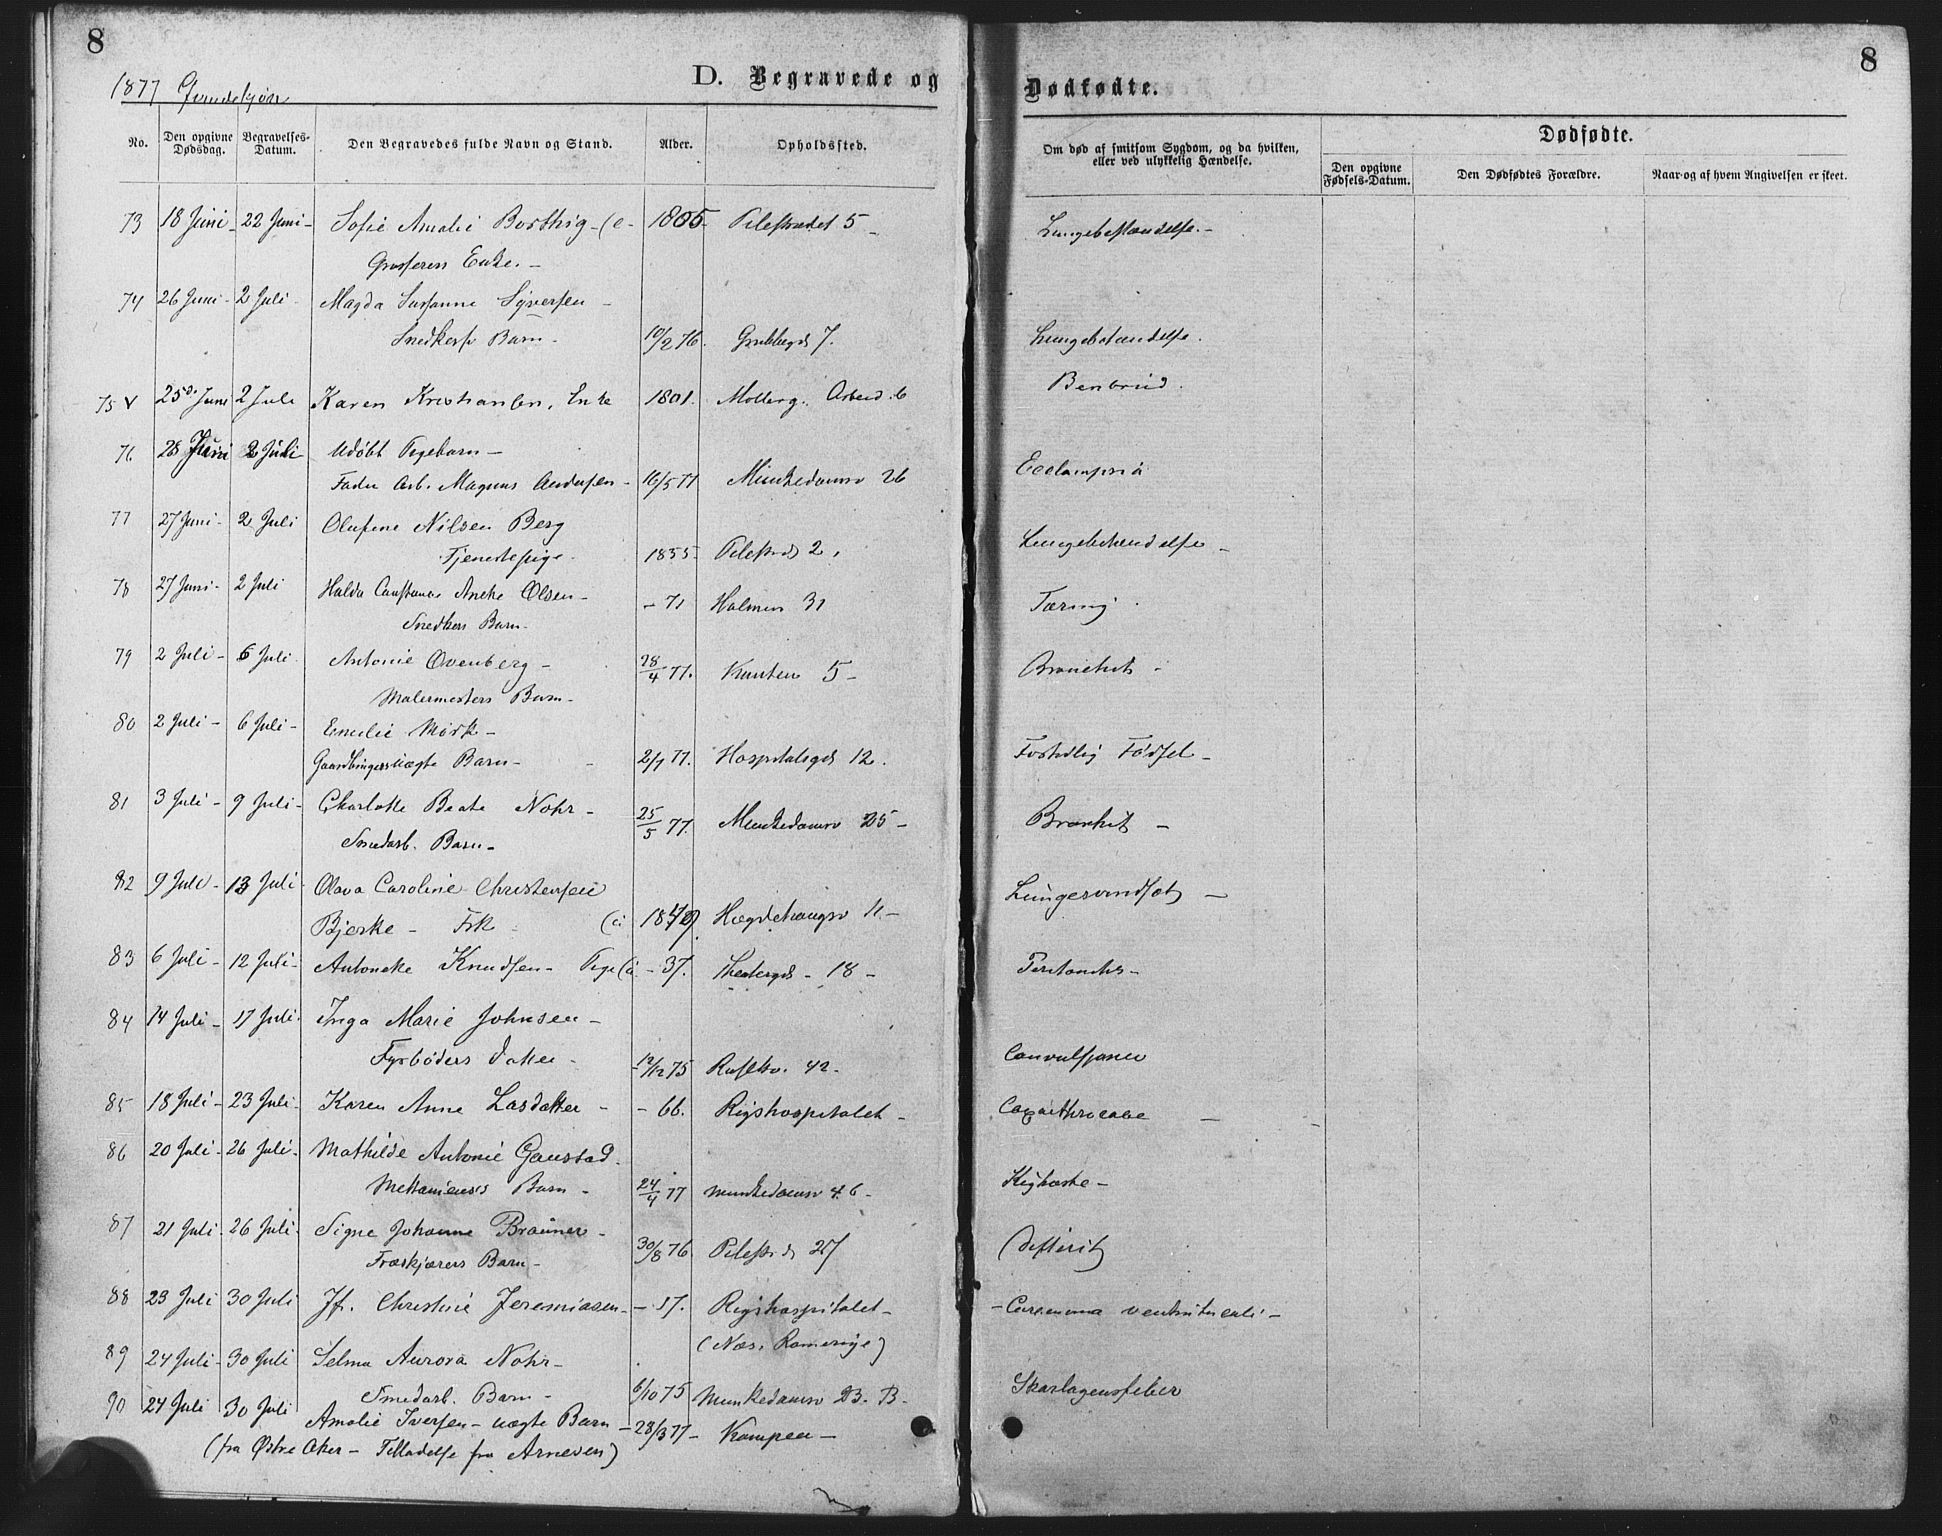 8
8
1877 Qvindekjøn
D. Begravede og Dødfødte.
No. Den opgivne Dødsdag. Begravelses-Datum. Den Begravedes fulde Navn og Stand. Alder. Opholdssted. Om død af smitsom Sygdom, og da hvilken, eller ved ulykkelig Hændelse. Dødfødte.
Den opgivne Fødsels-Datum. Den Dødfødtes Forældre. Naar og af hvem Angivelsen er skeet.
73 18 Juni - 22 Juni - Sofie Amalie - (e - 1805 - Pilestrædet 5 - Lungebetændelse. -
Enke. -
74 26 Juni - 2 Juli - Magda Susanne Syversen -
Snedkers Barn - 10/2 76. Grubbegd 7. Lungebetændelse.
75 V 25de Juni 2 Juli Karen Kristiansen, Enke 1801. Mollerg. Arbeid. Benbrud.
76 28 Juni 2 Juli Udöbt Pigebarn -
Fader Arb. Magnus Andersen - 16/5 77 Munkedamsv 26 Eclampsia
77 27 Juni - 2 Juli Olufine Nilsen Berg
Tjenestepige. 1855 - Pilestrd 2. Lungebetændelse -
78 27 Juni - 2 Juli Hulda Constance Olsen -
Snedkers Barn - - 71 Holmen 31 Tæring.
79 2 Juli - 6 Juli Antonie Ovenberg -
Malermesters Barn - 28/4 77. 5 - Bronchit -
80 2 Juli - 6 Juli - Emilie Mörk -
uægte Barn - 2/7 77. Hospitalsgd 12. Fortidlig Födsel -
81 3 Juli - 9 Juli - Charlotte Beate Nohr -
Smedarb. Barn - 25/5 77. Munkedamsv 25 - Bronkit -
82 9 Juli - 13 Juli - Olava Caroline Christensen
Bjerke - Frk - Hægdehaugsv 11 - Lungesvindsot -
83 6 Juli - 12 Juli - Antonette Knudsen - Pige - 37. Theatergd - 18 - Peritonitis -
84 14 Juli - 17 Juli. Inga Marie Johnsen -
Fyrböders Datter - 12/12 75 Ruselkv. 42 - Convulsjoner
85 18 Juli - 23 Juli - Karen Anne Larsdatter - - 66. Rigshospitalet - Coxarthrocace -
86 20 Juli - 26 Juli - Mathilde Antonie Gaustad.
Mekanikers Barn - 24/4 77 Munkedamsv 46 - Kighoste -
87 21 Juli - 26 Juli. Signe Johanne Brauner -
Træskjærers Barn - 30/8 76 Pilestrd 27 Difterit
88 23 Juli 30 Juli Jf. Christine Jeremiasen - - 17. Rigshospitalet - - Carcinoma ventriculi -
(Næs, Romerige)
89 24 Juli - 30 Juli Selma Aurora Nohr -
Smedarb. Barn - 6/10 75 Munkedamsv 23. B - Skarlagensfeber
90 24 Juli 30 Juli Amalie Iversen - uægte Barn - 28/3 77 - Kampen -
(fra Østre Aker - Tilladelse fra Arnesen)